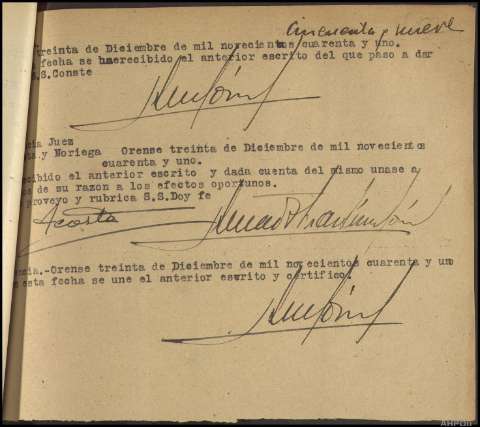 Cincuenta y nueve
treinta de Diciembre de mil novecientos cuarenta y uno.
fecha se haerecibido el anterior escrito del que paso a dar
S.S.Conste
cia Juez
ta y Noriega Orense treinta de Diciembre de mil novecientos
cuarenta y uno.
cibido el anterior escrito y dada cuenta del mismo unase a
s de su razon a los efectos oportunos.
proveyo y rubrica S.S.Doy fe
Acosta
encia.-Orense treinta de Diciembre de mil novecientos cuarenta y uno
esta fecha se une el anterior escrito y certifico.
AHPOU